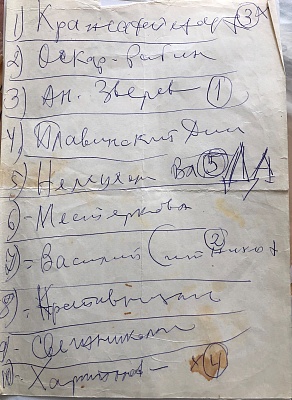 1) Краснопевцев ③
2) Оскар Рабин
3) Ан. Зверев ①
4) Плавинский Дим
5) Немухин Вл ⑤ ДА
6) - Мастеркова
7) - Василий Ситников ②
8) - Кропивницкий
9) - Свешников
10) - Харитонов - ④